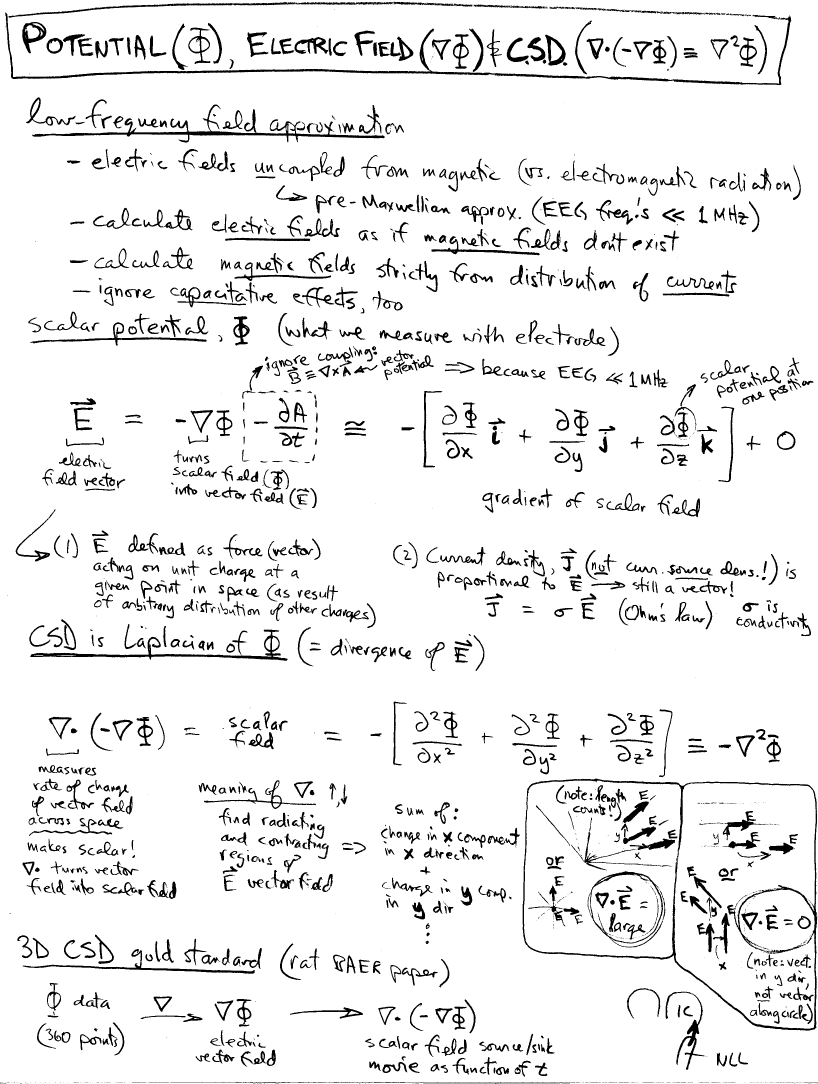 POTENTIAL (Φ), ELECTRIC FIELD (∇Φ) & C.S.D. (∇•(-∇Φ) ≡ ∇²Φ)
low-frequency field approximation
- electric fields uncoupled from magnetic (vs. electromagnetic radiation)
↳ pre-Maxwellian approx. (EEG freq.'s ≪ 1 MHz)
- calculate electric fields as if magnetic fields don't exist
- calculate magnetic fields strictly from distribution of currents
- ignore capacitative effects, too
scalar potential, Φ (what we measure with electrode)
ignore coupling:
B⃗ ≡ ∇×A ← vector potential
⇒ because EEG ≪ 1 MHz
scalar potential at one position
E⃗ = -∇Φ - ∂A/∂t ≅ -[∂Φ/∂x i⃗ + ∂Φ/∂y j⃗ + ∂Φ/∂z k⃗] + 0
electric field vector
turns scalar field (Φ) into vector field (E⃗)
gradient of scalar field
(1) E⃗ defined as force (vector)
acting on unit charge at a
given point in space (as result
of arbitrary distribution of other charges)
(2) Current density, J⃗ (not curr. source dens.!) is
proportional to E⃗ → still a vector!
J⃗ = σ E⃗ (Ohm's law) σ is conductivity
CSD is Laplacian of Φ (= divergence of E⃗)
∇• (-∇Φ) = scalar field = -[∂²Φ/∂x² + ∂²Φ/∂y² + ∂²Φ/∂z²] ≡ -∇²Φ
measures
rate of change
of vector field
across space
makes scalar!
∇• turns vector
field into scalar field
meaning of ∇• ↑,↓
find radiating
and contracting
regions of
E⃗ vector field
⇒
sum of:
change in x component
in x direction
+
change in y comp.
in y dir
⋮
(note: length
counts!)
E
E
E
y
x
or
E
E
∇•E⃗ =
large
E
y
E
E
x
or
E
E
y
E
x
∇•E⃗ = 0
(note: vect.
in y dir,
not vector
along circle)
3D CSD gold standard (rat BAER paper)
Φ data
(360 points)
∇
→
∇Φ
electric
vector field
→
∇• (-∇Φ)
scalar field source/sink
movie as function of t
IC
NLL